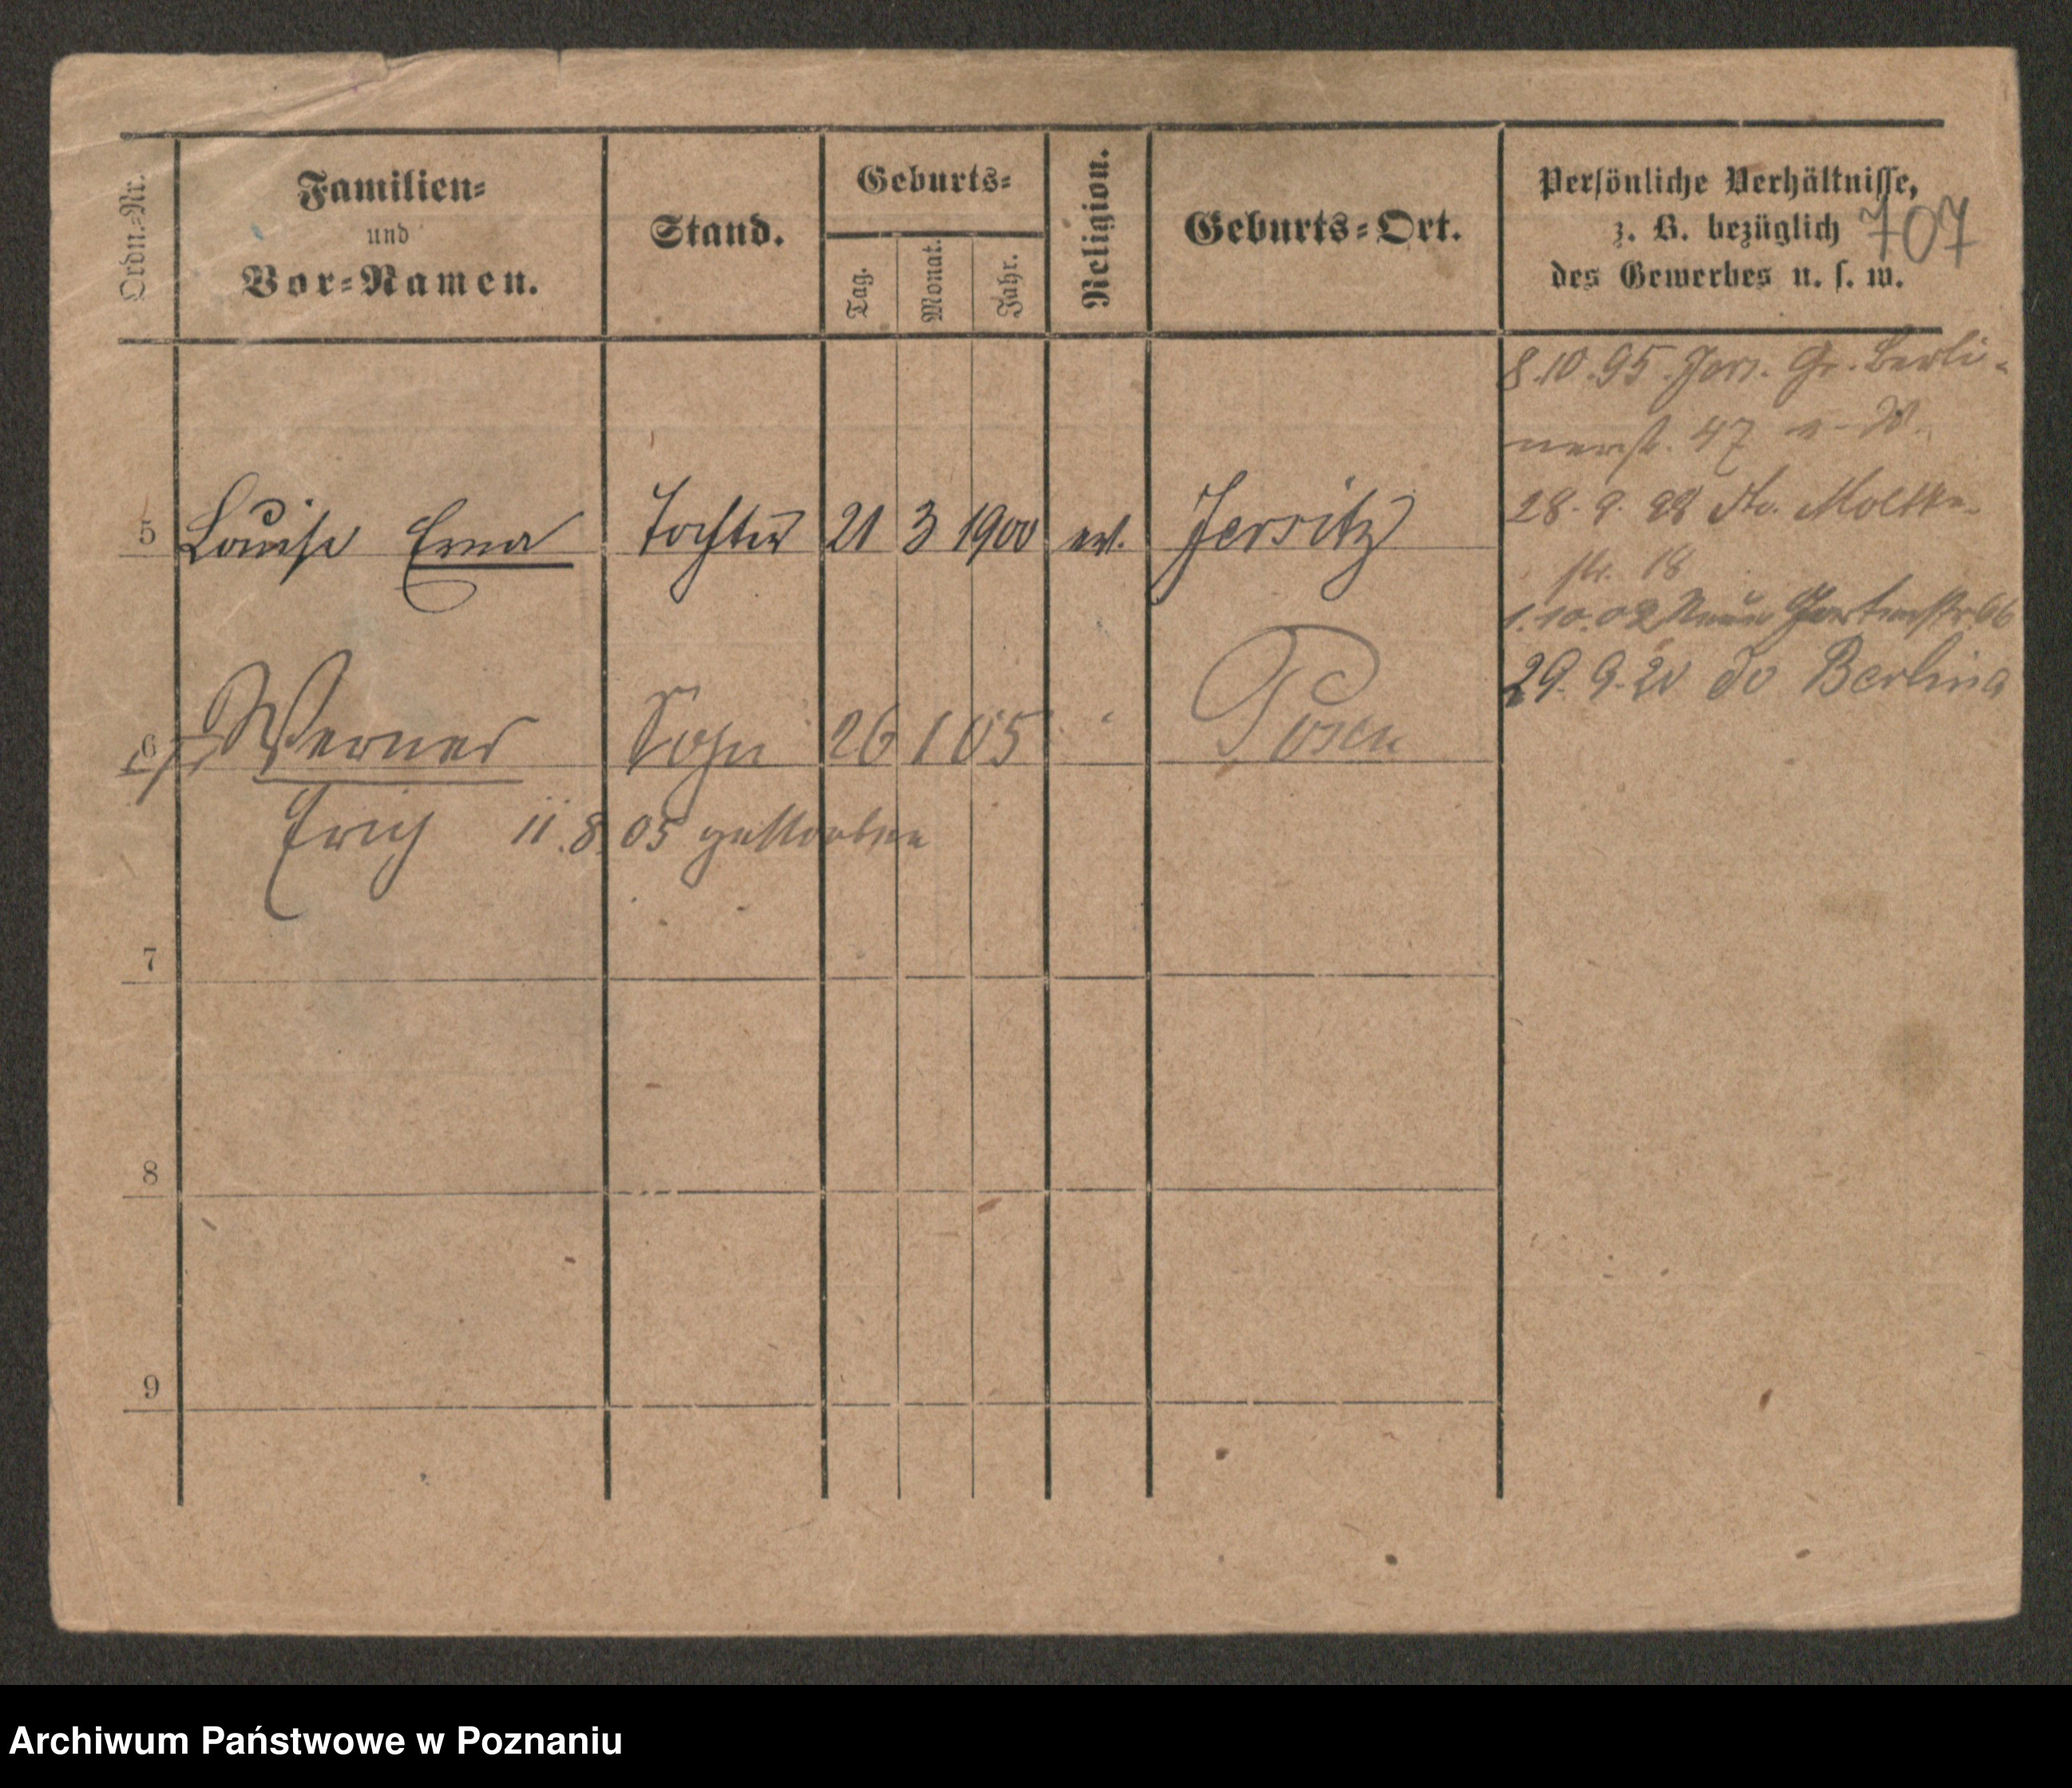 Ordn.-Nr.
Familien-
und
Vor-Namen.
Stand.
Geburts-
Tag.
Monat.
Jahr.
Religion.
Geburts-Ort.
Persönliche Verhältnisse,
z. B. bezüglich
des Gewerbes u. s. w.
707
8.10.95. Jers. Gr. Berli-
nerst. 47
28.9.98 Moltke-
str. 18
1.10.02 Neue Gartenstr 66
29.9.20 do Berlina
5 Louise Erna Tochter 21 3 1900 ev. Jersitz
6 Werner Sohn 26 1 05 " Posen
Erich 11.8.05 gestorben
7
8
9
Archiwum Państwowe w Poznaniu